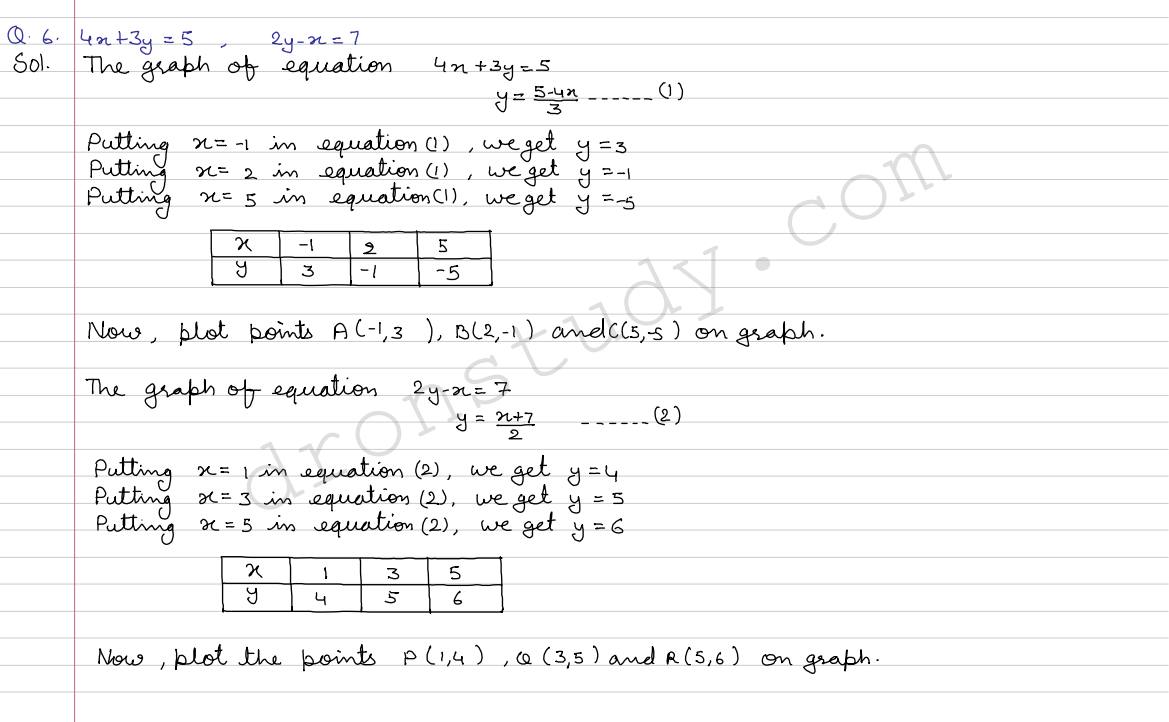 Q. 6. 4x+3y = 5 , 2y-x = 7
Sol. The graph of equation 4x+3y=5
y = 5-4x/3 ------ (1)
Putting x= -1 in equation (1) , we get y = 3
Putting x= 2 in equation (1) , we get y = -1
Putting x= 5 in equation (1), we get y = -5
x -1 2 5
y 3 -1 -5
Now, plot points A(-1,3 ), B(2,-1) and C(5,-5) on graph.
The graph of equation 2y-x= 7
y = x+7/2 ------ (2)
Putting x= 1 in equation (2), we get y = 4
Putting x= 3 in equation (2), we get y = 5
Putting x= 5 in equation (2), we get y = 6
x 1 3 5
y 4 5 6
Now , plot the points P(1,4) , Q (3,5) and R(5,6) on graph.
dronstudy.com